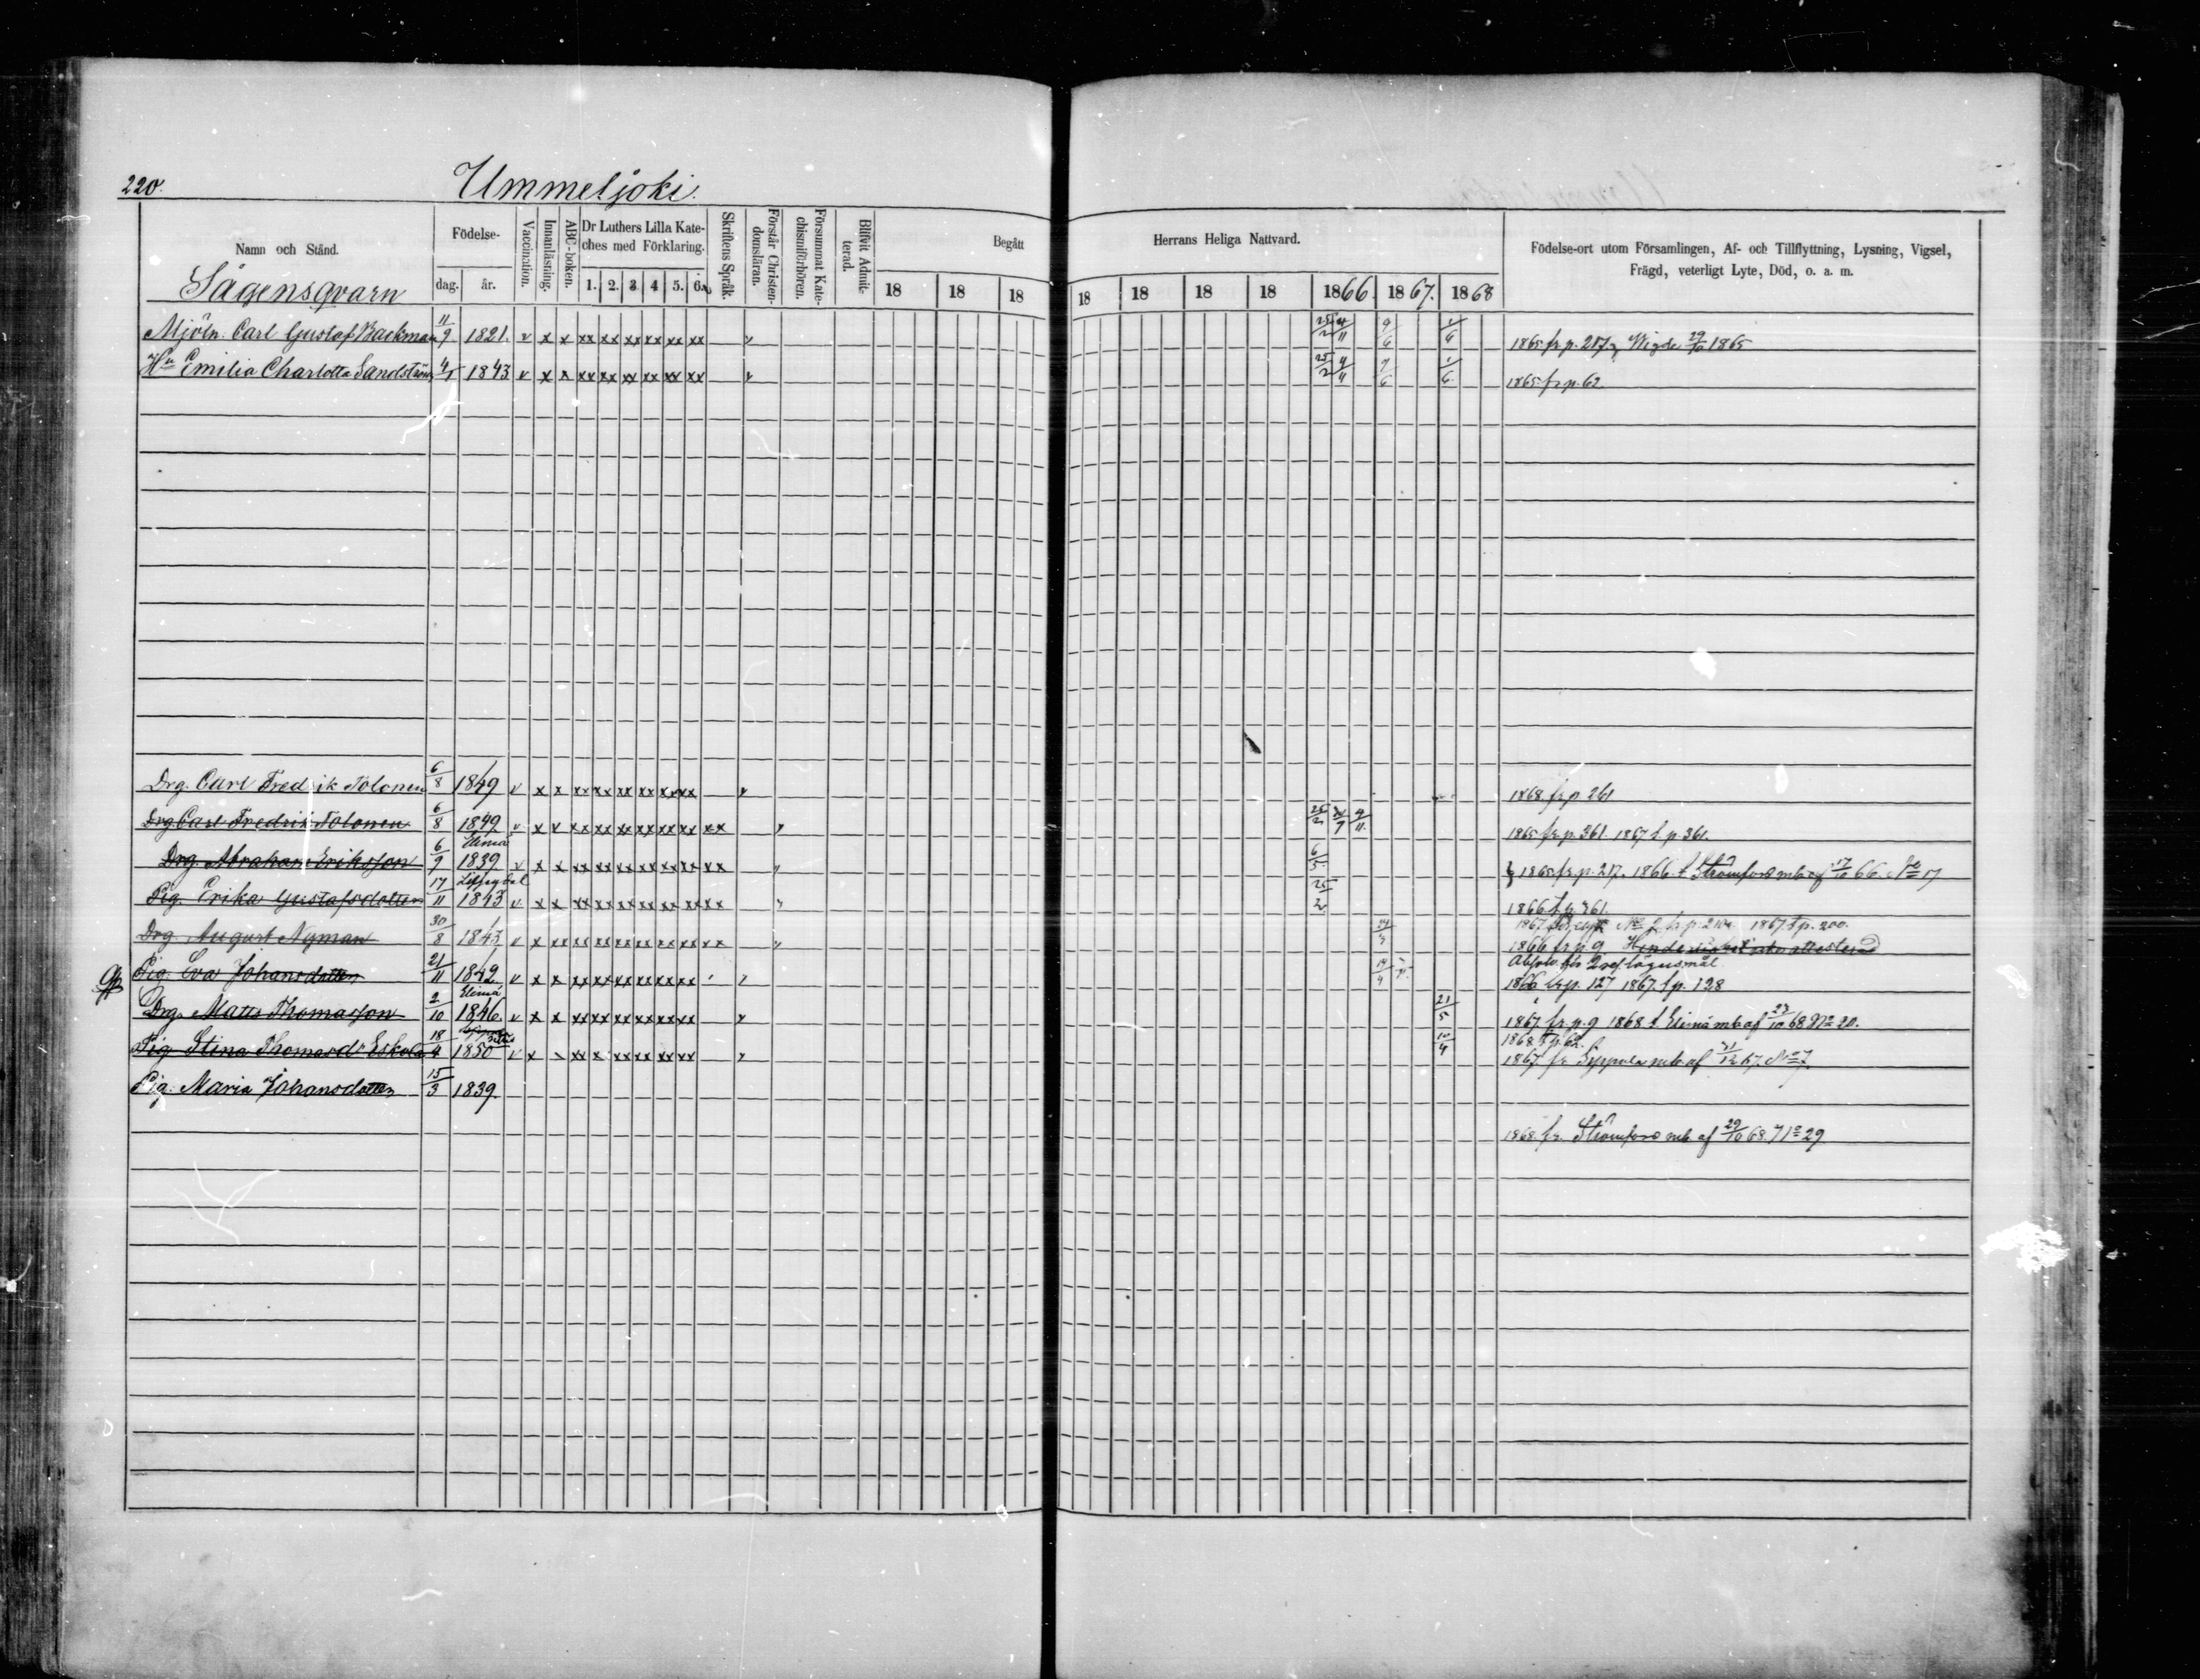 220. Ummeljoki.
Namn och Stånd. Födelse- dag. år. Vaccination. Innanläsning. ABC-boken. Dr Luthers Lilla Kateches med Förklaring. 1. 2. 3. 4 5. 6. Skriftens Språk. Förstår Christendomsläran. Försummat Katechismiförhören. Blifvit Admitterad. Begått Herrans Heliga Nattvard. Födelse-ort utom Församlingen, Af- och Tillflyttning, Lysning, Vigsel, Frägd, veterligt Lyte, Död, o. a. m.
18 18 18 18 18 18 18 1866. 1867. 1868
Sågensqvarn
Mjöln. Carl Gustaf Backman 11/9 1821. v x v xx xx xx xx xx xx v 25/2 4/11 9/6 1/6 1865 fr p. 217, Wigde 29/10 1865
Hu Emilia Charlotta Sandström 4/1 1843 v x x xx xx xx xx xx xx v 25/2 4/11 9/6 1/6 1865 fr p. 62
Drg. Carl Fredrik Tolonen 6/8 1849 v x x xx xx xx xx xx xx v 1868 fr p 261
Drg Carl Fredrik Tolonen 6/8 1849 v x v xx xx xx xx xx xx xx v 25/2 4/11. 1865 fr p. 361. 1867 t p. 361.
Elimä
Drg. Abraham Eriksson 6/9 1839 v x x xx xx xx xx xx xx xx v 6/5 1865 fr p. 217. 1866. t Strömfors mb af 17/10 66. No 17
Pig. Erika Gustafsdotter 17/11 1843 v x x xx xx xx xx xx xx xx v 25/2 1866 t p. 361.
Drg. August Nyman 30/8 1843 v x xx xx xx xx xx xx xx xx v 1867. t p. 200.
1866 fr p. 9
Pig. Eva Johansdotter 21/11 1842 v x x xx xx xx xx xx xx Absolv. för 2 res. lägersmål
1866 fr p. 127 1867. t p. 128
Elimä
Drg. Matts Thomasson 2/10 1846. v x x xx xx xx xx xx xx v 21/5 1867. fr p. 9 1868 t Elimä mb af 23/10 68 No 20.
1868 t p. 62.
Pig. Stina Thomasdr Eskola 18/4 1850 v x xx x xx xx xx xx v 10/4 1867. fr Sippola mb af 67. No 7.
Pig. Maria Johansdotter 15/3 1839.
1868. fr. Strömfors mb. af 29/10 68. No 29